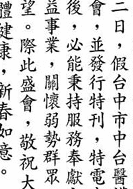 二日，假台中市中台醫
會，並發行特刊，特電
後，必能秉持服務奉獻
益事業，關懷弱勢群眾
望。際此盛會，敬祝大
體健康，新春如意。